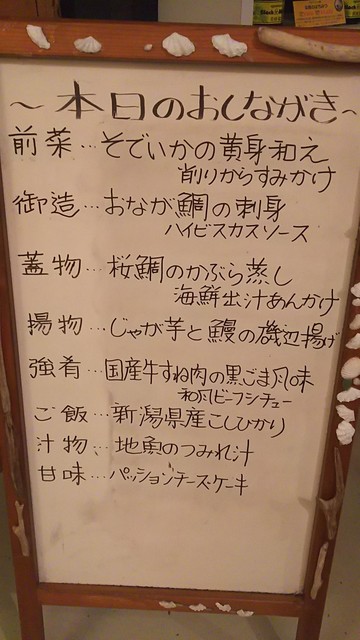 ～本日のおしながき～
前菜…そでいかの黄身和え
削りからすみかけ
御造…おなが鯛の刺身
ハイビスカスソース
蓋物…桜鯛のかぶら蒸し
海鮮出汁あんかけ
揚物…じゃが芋と鰻の磯辺揚げ
強肴…国産牛すね肉の黒ごま風味
和風ビーフシチュー
ご飯…新潟県産こしひかり
汁物…地魚のつみれ汁
甘味…パッションチーズケーキ